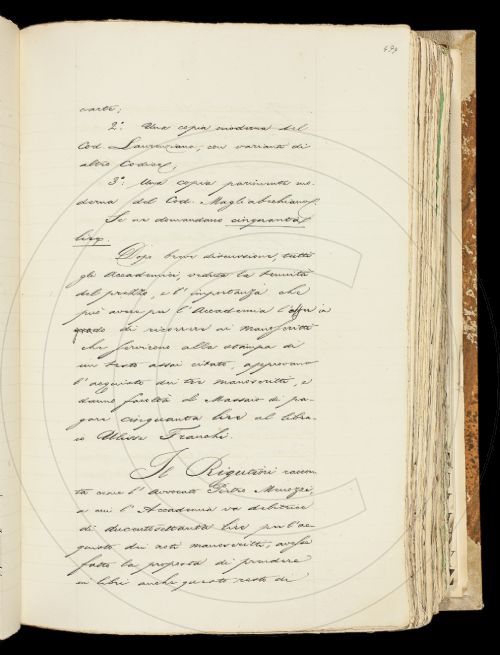 carte;
2º: Una copia moderna del
Cod. Laurenziano, con varianti di
altro Codice;
3º: Una copia parimente mo-
derna del Cod. Magliabechiano.
Se ne domandano cinquanta
lire.
Dopo breve discussione, tutti
gli Accademici, veduta la tenuità
del prezzo, e l'importanza che
può avere per l'Accademia l'esser in
grado di ricorrere ai manoscritti
che servirono alla stampa di
un testo assai citato, approvano
l'acquisto dei tre manoscritti, e
danno facoltà al Massaio di pa-
gare cinquanta lire al libra-
io Ulisse Franchi.
Il Rigutini raccon-
ta come l'Avvocato Pietro Menozzi,
a cui l'Accademia va debitrice
di duecentottanta lire per l'ac-
quisto dei noti manoscritti, avesse
fatto la proposta di prendere
in libri anche questo resto di